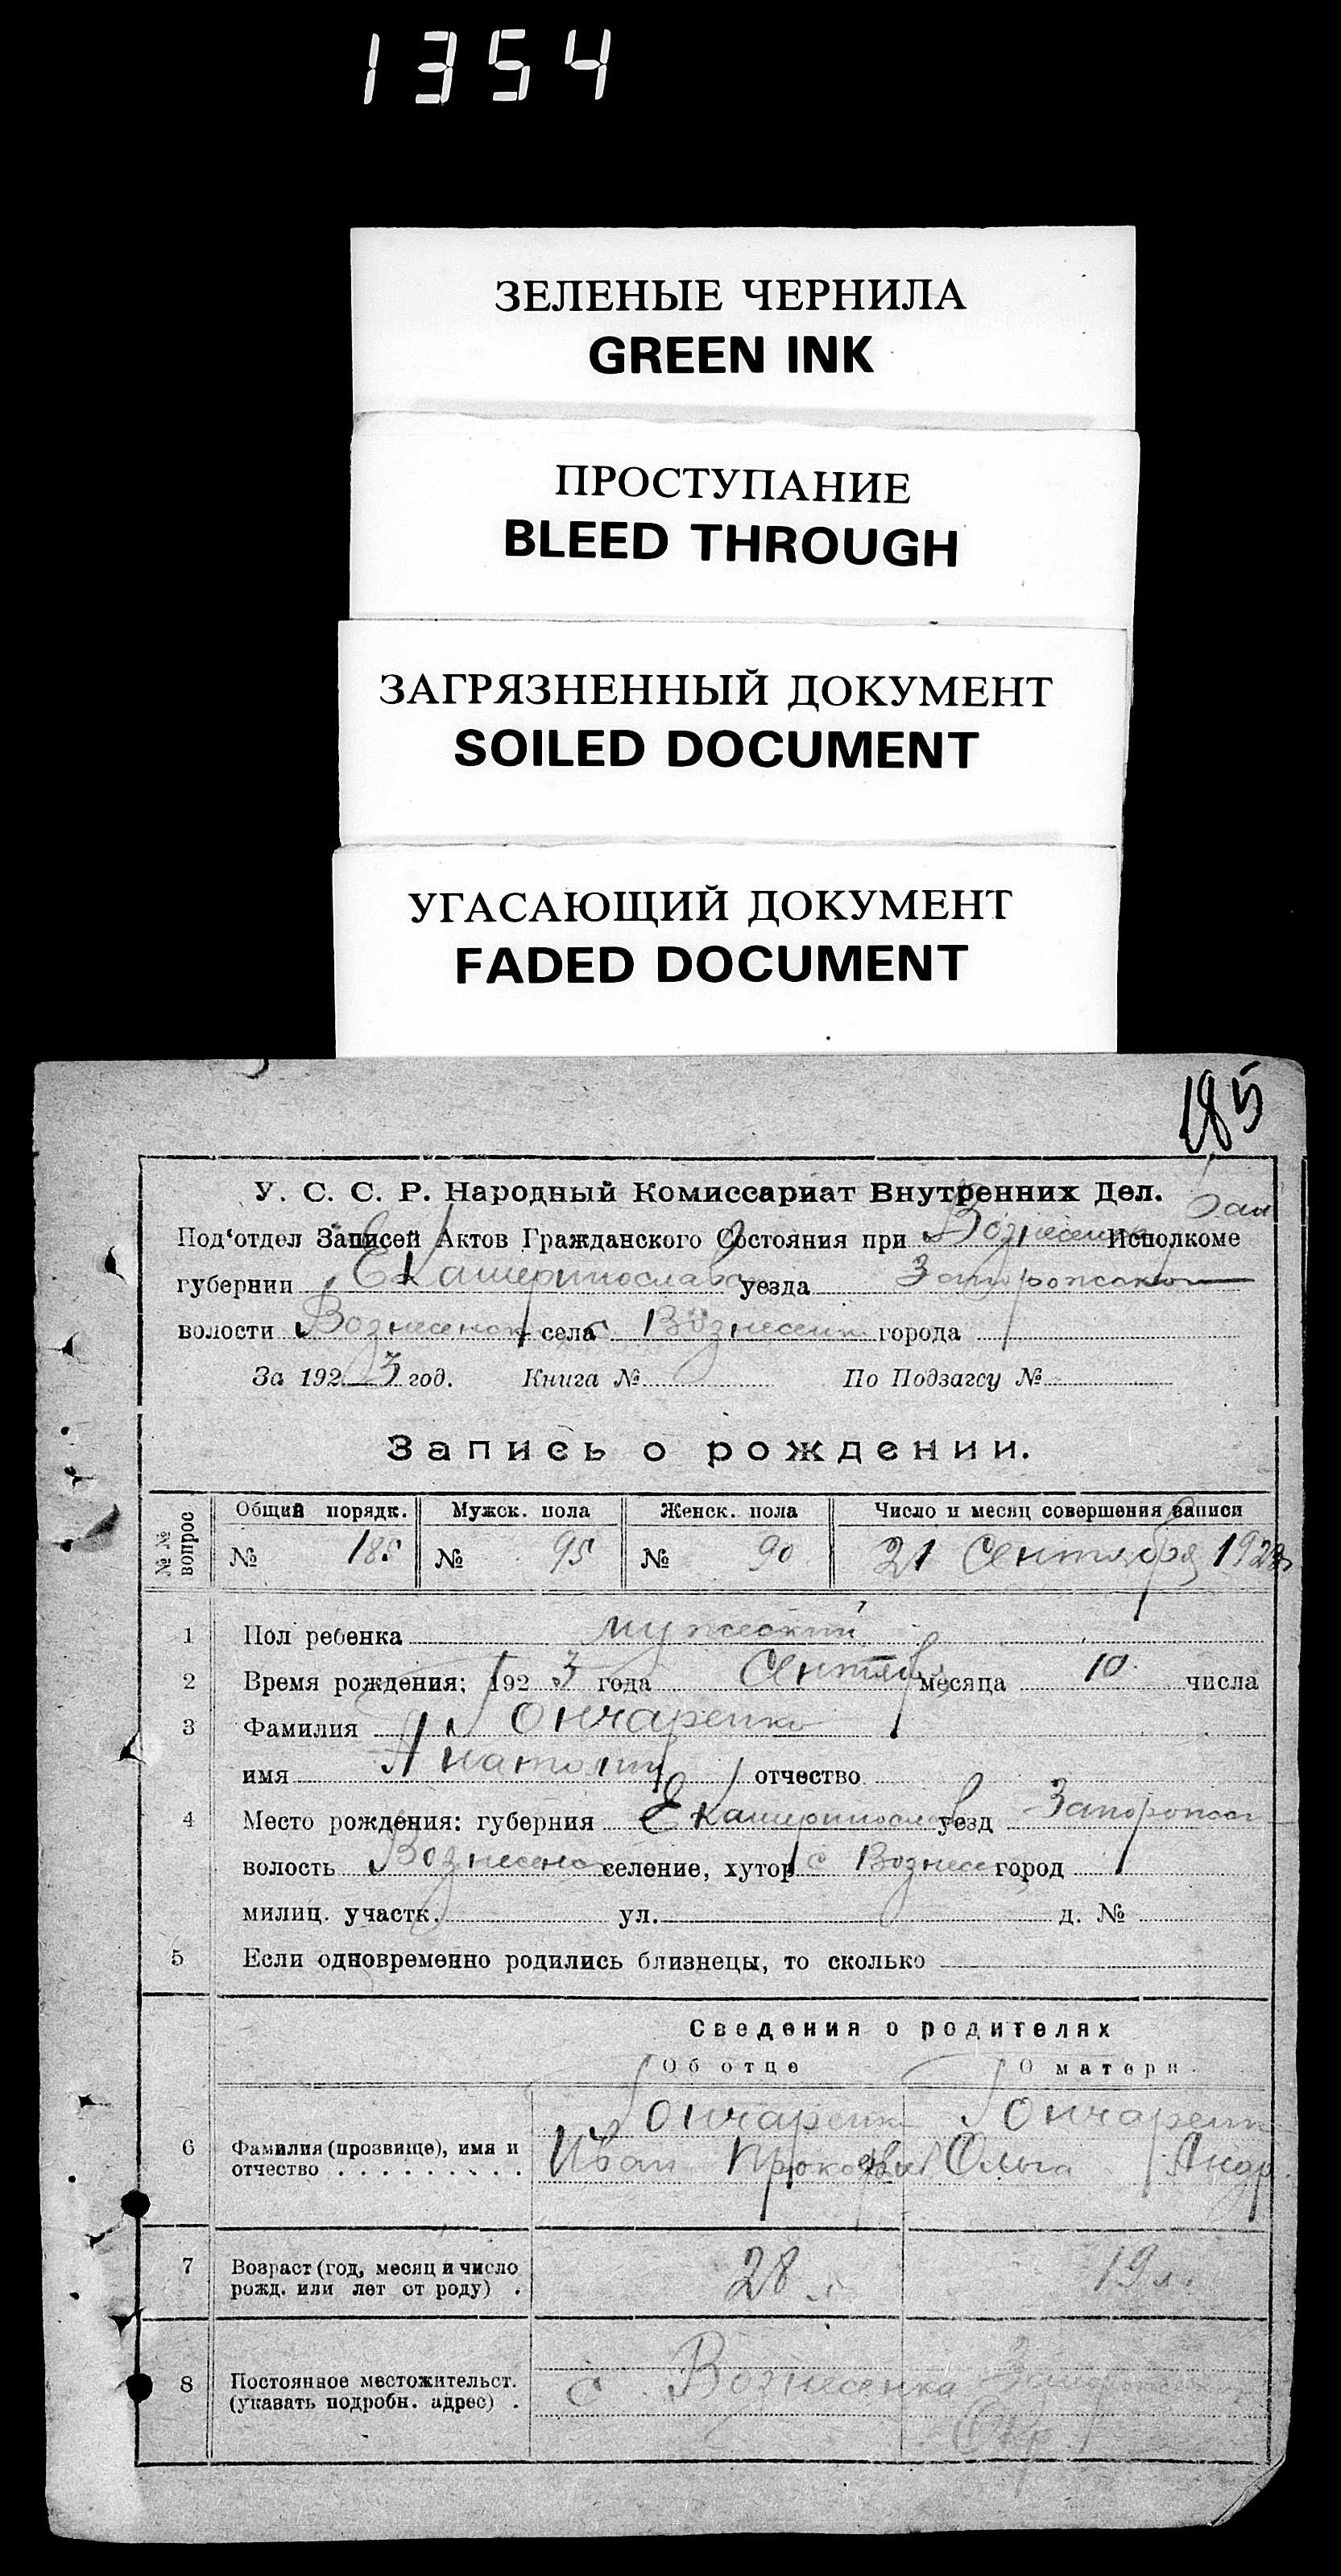 1354
ЗЕЛЕНЫЕ ЧЕРНИЛА
GREEN INK
ПРОСТУПАНИЕ
BLEED THROUGH
ЗАГРЯЗНЕННЫЙ ДОКУМЕНТ
SOILED DOCUMENT
УГАСАЮЩИЙ ДОКУМЕНТ
FADED DOCUMENT
185
У. С. С. Р. Народный Комиссариат Внутренних Дел.
Под'отдел Записей Актов Гражданского Состояния при Исполкоме
губернии Екатеринослав уезда
волости Вознесенск села Вознесенк города
За 1923 год. Книга № По Подзагсу №
Запись о рождении.
№№ вопрос Общий порядк. Мужск. пола Женск. пола Число и месяц совершения записи
№ 185 № 95 № 90 21 Сентября 1923
1 Пол ребенка мужеский
2 Время рождения: 1923 года Сентяб месяца 10 числа
3 Фамилия Гончаренко
имя Анатолий отчество
4 Место рождения: губерния Екатеринослав уезд Запорожск
волость Вознесенс селение, хутор с Вознесе город
милиц. участк. ул. д. №
5 Если одновременно родились близнецы, то сколько
Сведения о родителях
Об отце О матери
Гончаренк Гончаренк
6 Фамилия (прозвище), имя и Иван Ольга Андр
отчество
7 Возраст (год, месяц и число 28 19 л.
рожд. или лет от роду)
8 Постоянное местожительст. с Вознесенка
(указать подробн. адрес) Окр